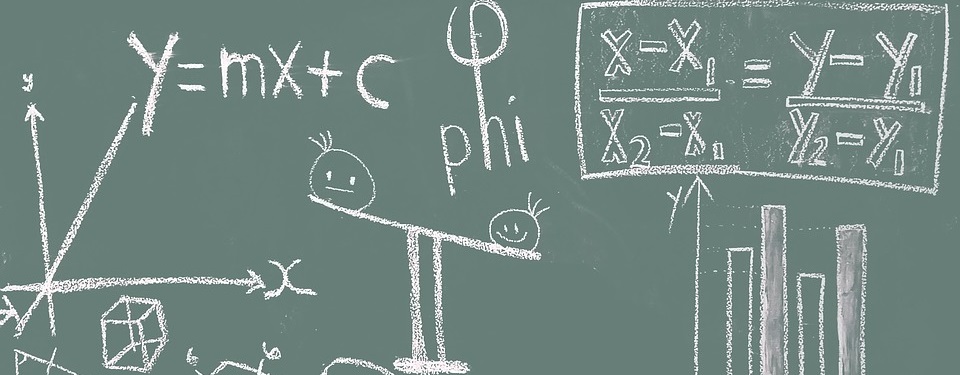 y=mx+c
φ
phi
x-x₁/x₂-x₁ = y-y₁/y₂-y₁
y
x
y